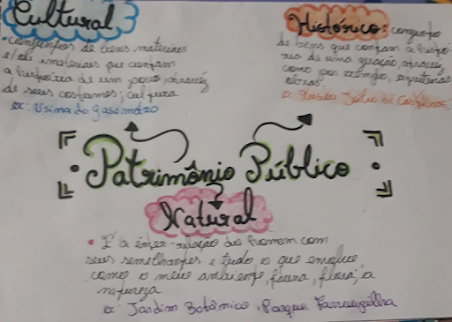 Cultural
• conjuntos de bens materiais
e/ou imateriais que contam
a história de um povo através
de seus costumes; cultura
ex: Usina do Gasômetro
Histórico: conjunto
de bens que contam a histó-
ria de uma geração, através
como por exemplo,
obras.
ex: Júlio de Castilhos
Patrimônio Público
Natural
• É a inter-relação do homem com
seus semelhantes e tudo o que envolve
como o meio ambiente, fauna, flora, a
natureza
ex: Jardim Botânico, Parque Farroupilha